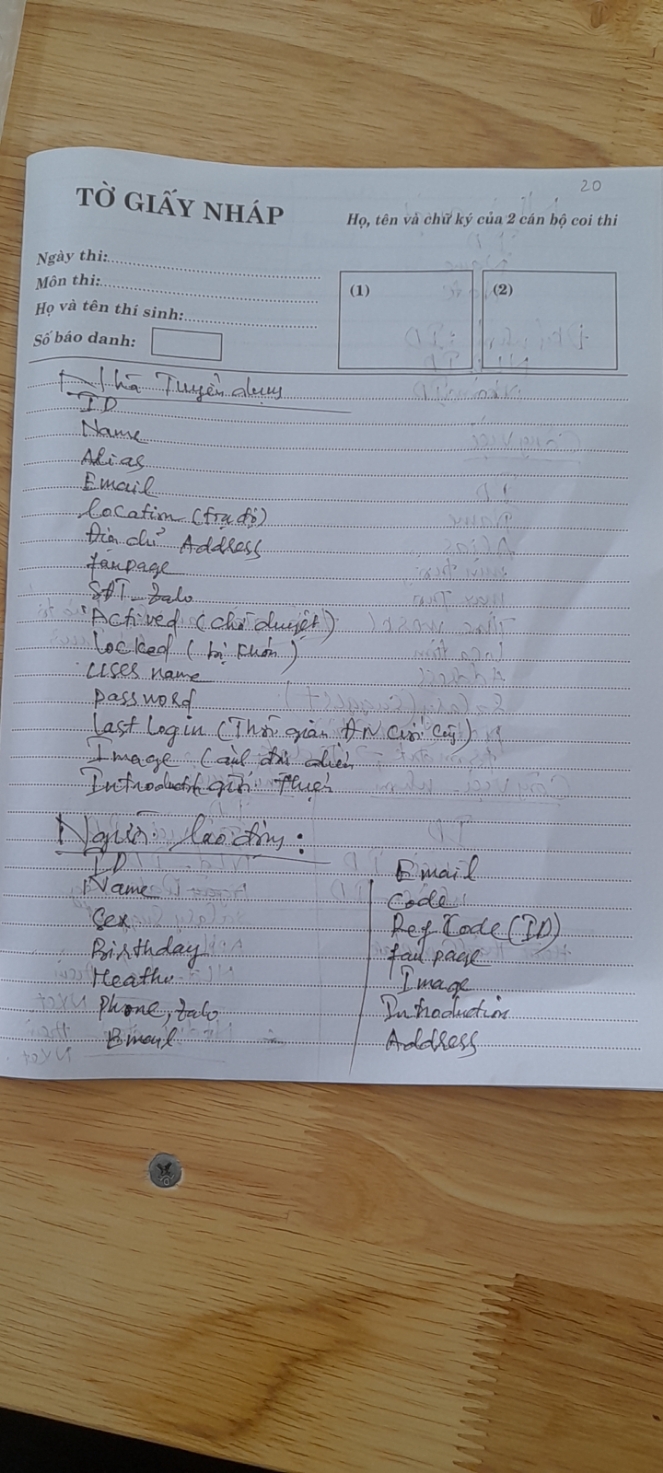 20
TỜ GIẤY NHÁP
Họ, tên và chữ ký của 2 cán bộ coi thi
Ngày thi:
Môn thi:
Họ và tên thí sinh:
Số báo danh:
(1)
(2)
Nhà Tuyển dụng
ID
Name
Alias
Email
Location (tọa độ)
Địa chỉ Address
fanpage
SĐT_Zalo
Actived (chờ duyệt)
locked (bị khóa)
User name
password
Last Login (Thời gian ĐN cuối cùng)
Image (ảnh đại diện
Introduction giới thiệu
Người lao động:
ID
Name
Sex
Birthday
Phone, Zalo
Email
Email
Code
Ref Code (ID)
fan page
Image
Introduction
Address